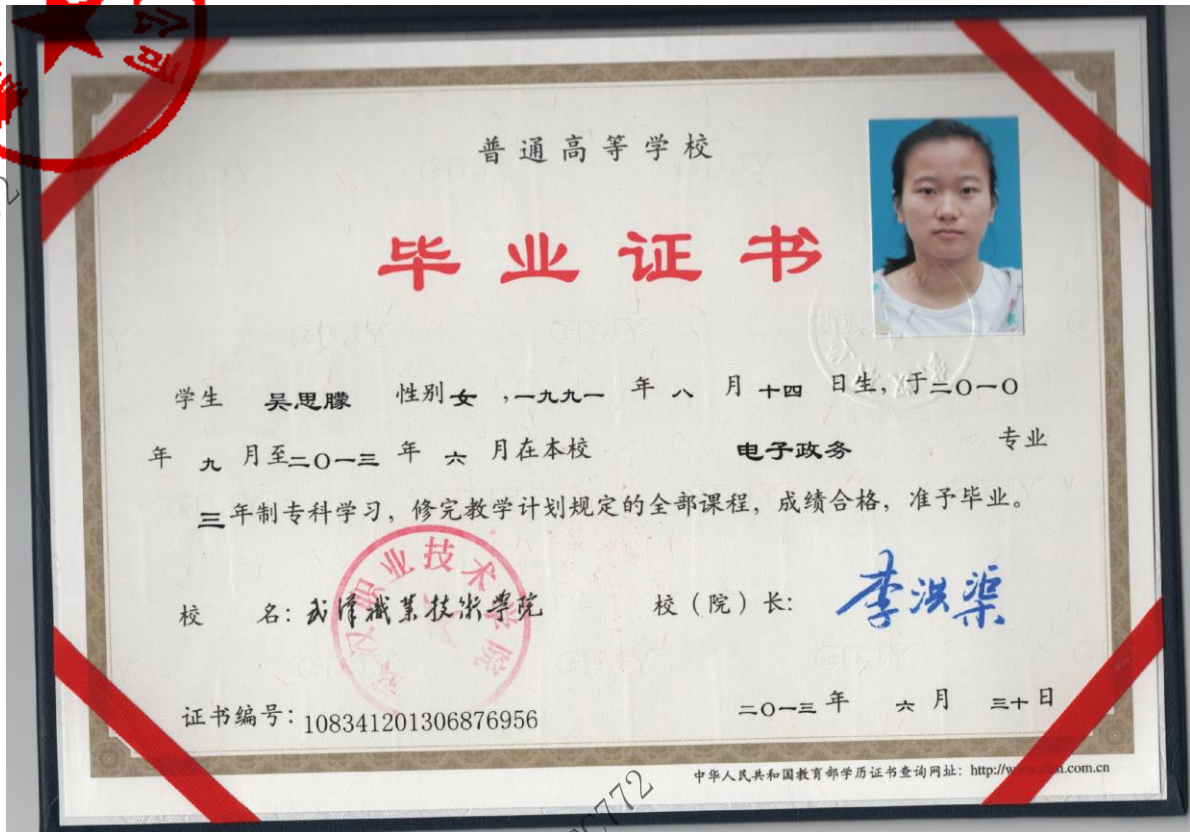 普通高等学校
毕业证书
学生 吴思朦 性别女,一九九一 年 八 月 十四 日生,于二〇一〇
年 九 月至二〇一三 年 六 月在本校 电子政务 专业
三年制专科学习,修完教学计划规定的全部课程,成绩合格,准予毕业。
武汉职业技术学院
校 名:武漢職業技術學院 校(院)长:李洪渠
证书编号:108341201306876956 二〇一三 年 六 月 三十日
中华人民共和国教育部学历证书查询网址:http://w .com.cn
公司
C772